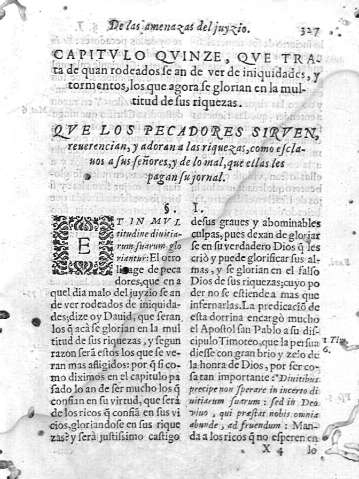 De las amenazas del juyzio. 327
CAPITVLO QVINZE, QVE TRA-
ta de quan rodeados se an de ver de iniquidades, y
tormentos, los que agora se glorian en la mul
titud de sus riquezas.
QVE LOS PECADORES SIRVEN,
reuerencian, y adoran a las riquezas, como escla
uos a sus señores, y de lo mal, que ellas les
pagan su jornal.
§. I.
ET IN MVL
titudine diuitia-
rum suarum glo
riantur: El otro
linage de peca
dores, que en a
quel dia malo del juyzio se an
de ver rodeados de iniquida-
des; dize oy Dauid, que seran
los q̃ acà se glorian en la mul
titud de sus riquezas, y segun
razon serà estos los que se ve-
ran mas afligidos: por q̃ si co
mo diximos en el capitulo pa
sado lo an de ser mucho los q̃
confian en su virtud, que serà
de los ricos q̃ confià en sus vi
cios, gloriandose en sus rique
zas? y serà justissimo castigo
desus graues y abominables
culpas, pues dexan de gloriar
se en su verdadero Dios q̃ les
criò y puede glorificar sus al-
mas, y se glorian en el falso
Dios de sus riquezas; cuyo po
der no se estiende a mas que
infernarlas. La predicaciõ de
esta dotrina encargò mucho
el Apostol san Pablo a su dis-
cipulo Timoteo, que la persua
diesse con gran brio y zelo de
la honra de Dios, por ser co-
sa tan importante: Diuitibus
precipe non sperare in incerto di
uitiarum suarum: sed in Deo
viuo, qui præstat nobis omnia
abunde, ad fruendum: Man-
da a los ricos q̃ no esperen en
1 Tim
6.
X 4 lo